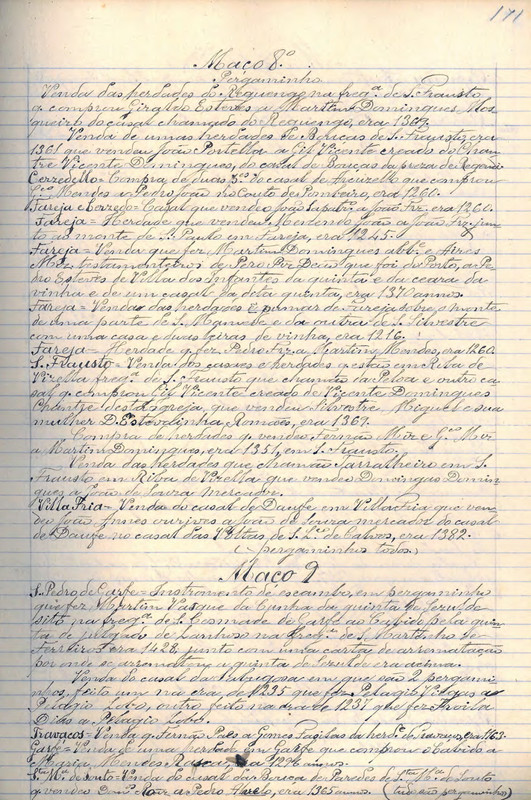 171
Maço 8º
Pergaminho
Venda das herdades do Requengo na fregª. de S. Frausto
q. comprou Giraldo Esteves a Martim Domingues Mos
queiro do casal chamado do Requengo, era 1363.
Venda de umas herdades de Bouças de S. Frausto, era
1361 que vendeu João Portella a Gil Vicente creado do Chan
tre Vicente Domingues, do casal de Bouças da
Cerzedello = Compra de duas do casal de que comprou
Gº. Mendes a Pedro João no Couto de Pombeiro, era 1260.
Fareja e Cerzedo = Casal que vendeu João a João Frz. era 1260.
Fareja = Herdade que vendeu Menendo João a João Frz. jun
to ao monte de S. Paulo em Fareja, era 1245.
Fareja = Venda que fez Martim Domingues abbe. e Ayres
testamenteiros de Pero que foi do Porto, a Pe
dro Esteves de Villa dos Infantes da quinta e da ceara da
vinha e de um casal da dita quinta, era 1370 annos.
Fareja = Vendas das herdades e pumar de Fareja sobre o monte
de uma parte de S. Mamede e da outra de S. Silvestre
com uma casa e duas leiras de vinha, era 1216.
Fareja = Herdade q. fez Pedro Frz. a Martim Mendes, era 1260.
S. Frausto = Venda dos casaes e herdades q. estão em Riba de
Vizella fregª. de S. Frausto que chamão da e outro ca
sal q. comprou Gil Vicente creado de Vicente Domingues
Chantre desta Igreja, que vendeu Silvestre Miguel e sua
mulher D. Estevainha Romães, era 1367.
Compra de herdades q. vendeu Fernão e Gº.
a Martim Domingues, era 1351, em S. Frausto.
Venda das herdades que chamão Carvalheiro em S.
Frausto em Riba de Vizella que vendeu Domingas Domin
gues a João de Souza mercador.
Villa Fria = Venda do casal de Daufe em Villa Fria que ven
deu João Annes ourives a João de Souza mercador do casal
de Daufe no casal das de S. de Calvos, era 1382.
(pergaminhos todos)
Maço 9
S. Pedro de Garfe = Instromento de escambo, em pergaminho
que fez Martim Vasques da Cunha da quinta de
sita na fregª. de S. Cosmade de Garfe ao Cabido pela quin
ta de julgado de Lanhoso na fregª. de S. Martinho de
Ferreiros era 1428 junto com uma carta de arrematação
por onde se arrematou a quinta de era acima.
Venda do casal da em que são 2 pergami
nhos, feito um na era de 1235 que fez Pelagio Viegas a
Pelagio Lobo, outro feito na era de 1237 que fez Froila
Dias a Pelagio Lobo.
Travaços = Venda q. Fernão Paes a Gomes da herde. de Travaços, era 1163.
Garfe = Venda de uma herdade em Garfe que comprou o Cabido a
Maria Mendes era 1296 annos.
Sta. Mª. de Souto = Venda do casal das Bouças de Paredes de S.ta Mª. de Souto
q. vendeu a Pedro era 1365 annos. (tres são pergaminhos)